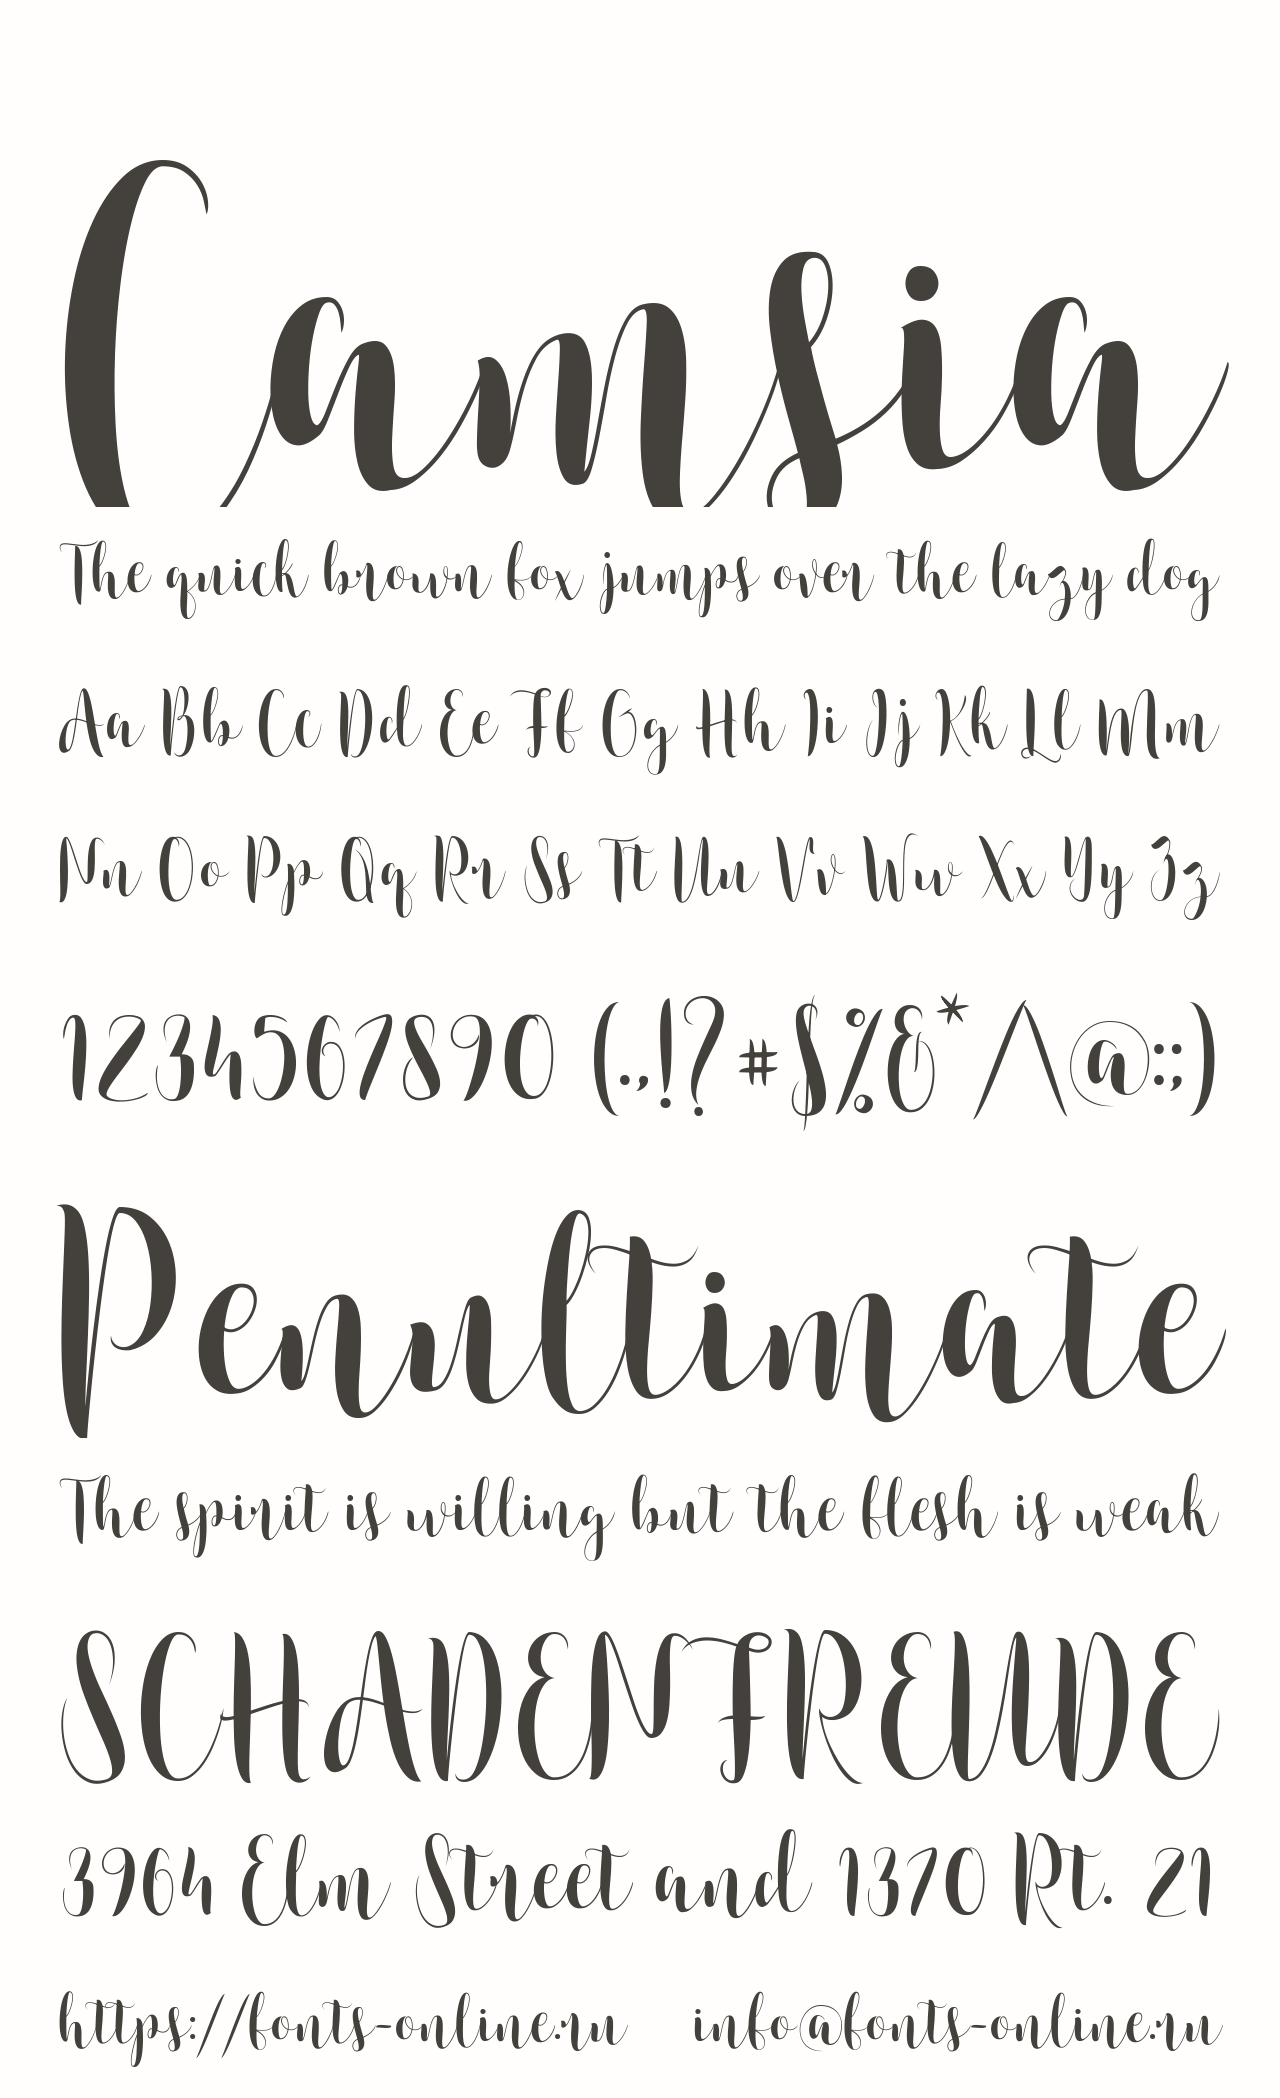 Camsia
The quick brown fox jumps over the lazy dog
Aa Bb Cc Dd Ee Ff Gg Hh Ii Jj Kk Ll Mm
Nn Oo Pp Qq Rr Ss Tt Uu Vv Ww Xx Yy Zz
1234567890 (.,!?#$%&*/\@:;)
Penultimate
The spirit is willing but the flesh is weak
SCHADENFREUDE
3964 Elm Street and 1370 Rt. 21
https://fonts-online.ru info@fonts-online.ru